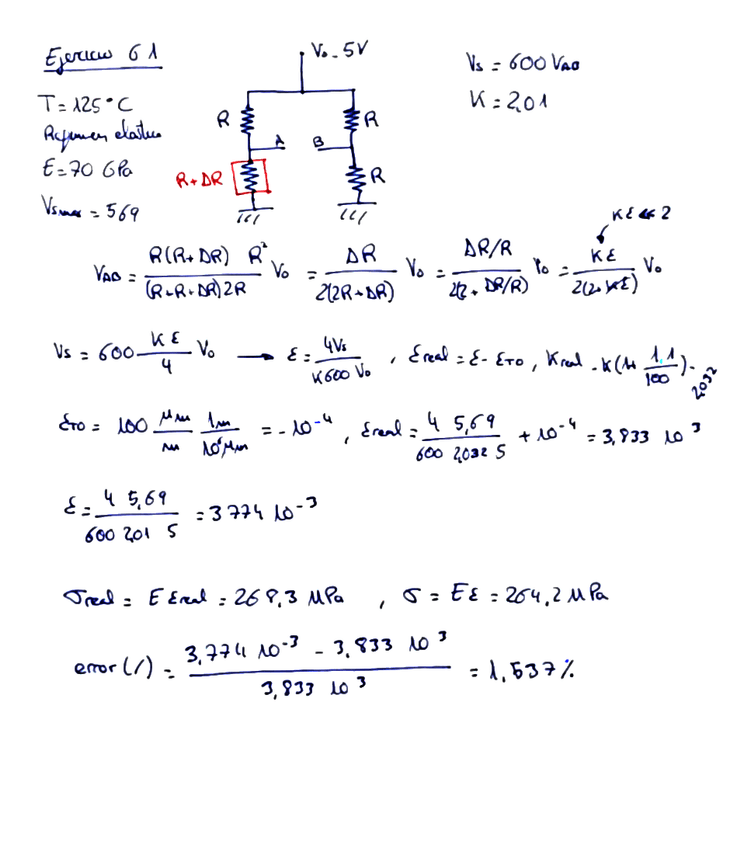 Ejercicio 6 1
V₀ - 5V
Vs = 600 V_AB
T = 125 °C
K = 2,01
R A B R
Regimen elastico
E = 70 GPa
R + ΔR R
Vs max = 5,69
Kε << 2
V_AB = R(R+ΔR) R² / (R+R+ΔR)2R V₀ = ΔR / 2(2R+ΔR) V₀ = ΔR/R / 2(2+ΔR/R) V₀ = Kε / 2(2+Kε) V₀
Vs = 600 Kε / 4 V₀ → ε = 4Vs / K 600 V₀ , ε real = ε - ε_TO , K real = K(1+ 1.1 / 100) - 2032
ε_TO = 100 μm / m 1m / 10⁶ μm = -10⁻⁴ , ε real = 4 5,69 / 600 2,032 5 + 10⁻⁴ = 3,833 10³
ε = 4 5,69 / 600 2,01 5 = 3 774 10⁻³
σ real = E ε real = 268,3 MPa , σ = Eε = 264,2 MPa
error (/) = 3,774 10⁻³ - 3,833 10³ / 3,833 10³ = 1,537%